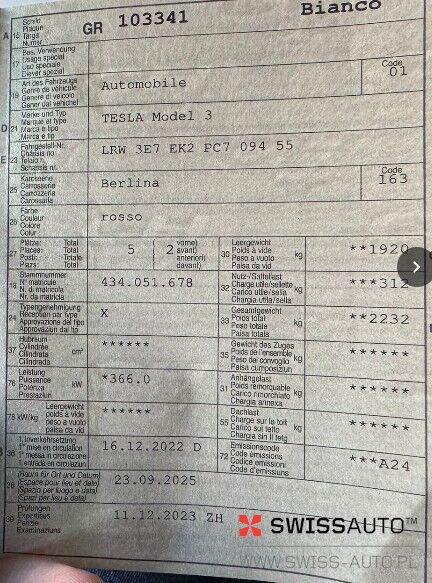 A 15 Schild Plaque Targa Numer GR 103341 Bianco
17 Bes. Verwendung
Usage spécial
Uso speciale
Diever spezial
19 Art des Fahrzeugs
Genre de véhicule
Genere di veicolo
Gener dal vehichel
Automobile
Code
01
D 21 Marke und Typ
Marque et type
Marca e tipo
Marca e tip
TESLA Model 3
E 23 Fahrgestell-Nr.
Châssis no
Telaio n.
Schassis nr.
LRW 3E7 EK2 PC7 094 55
25 Karosserie
Carrosserie
Carrozzeria
Carossaria
Berlina
Code
163
26 Farbe
Couleur
Colore
Colur
rosso
27 Plätze: Total
Places: Total
Posti: Totale
Plazs: Total
5 ( 2 vorne)
avant)
anteriori)
davant)
30 Leergewicht
Poids à vide
Peso a vuoto
Paisa da vid
kg **1920
18 Stammnummer
N° matricule
N. di matricola
Nr. da matricla
434.051.678
32 Nutz-/Sattellast
Charge utile/sellette
Carico utile/sella
Chargia utila/sella
kg ***312
24 Typengenehmigung
Réception par type
Approvazione del tipo
Approvaziun dal tip
X
33 Gesamtgewicht
Poids total
Peso totale
Paisa totala
kg **2232
37 Hubraum
Cylindrée
Cilindrata
Cilindrada
cm³ ******
35 Gewicht des Zuges
Poids de l'ensemble
Peso del convoglio
Paisa cumposiziun
kg ******
76 Leistung
Puissance
Potenza
Prestaziun
kW *366.0
31 Anhängelast
Poids remorquable
Carico rimorchiato
Chargia annexa
kg ******
78 kW/kg Leergewicht
poids à vide
peso a vuoto
paisa da vid
******
55 Dachlast
Charge sur le toit
Carico sul tetto
Chargia sin il tetg
kg ******
B 36 1. Inverkehrsetzung
1re mise en circulation
1a messa in circolazione
1. entrada en circulaziun
16.12.2022 D
72 Emissionscode
Code émissions
Codice emissioni
Code d'emissiuns
***A24
38 (Raum für Ort und Datum)
(Espace pour lieu et date)
(Spazio per luogo e data)
(Spazi per lieu e data)
23.09.2025
39 Prüfungen
Expertises
Perizie
Examinaziuns
11.12.2023 ZH
SWISSAUTO™
WWW.SWISS-AUTO.PL